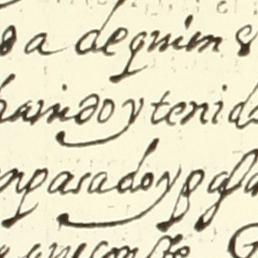 da de quien s
havido y tenido
npasado y pasa
que conste